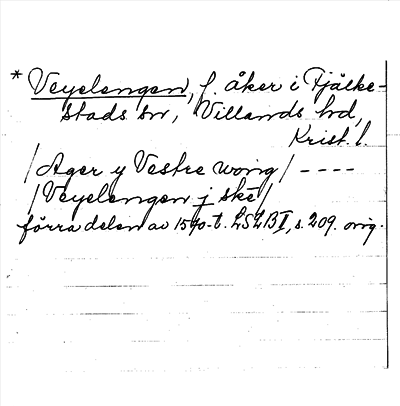 * Veyelengen, f. åker i Fjälke-
stads sn, Villands hd,
Krist. l.
/Ager y Vestre wong/ ----
/Veyelengen j skë/
förra delen av 1590-t. LSLB I, s. 209. orig.